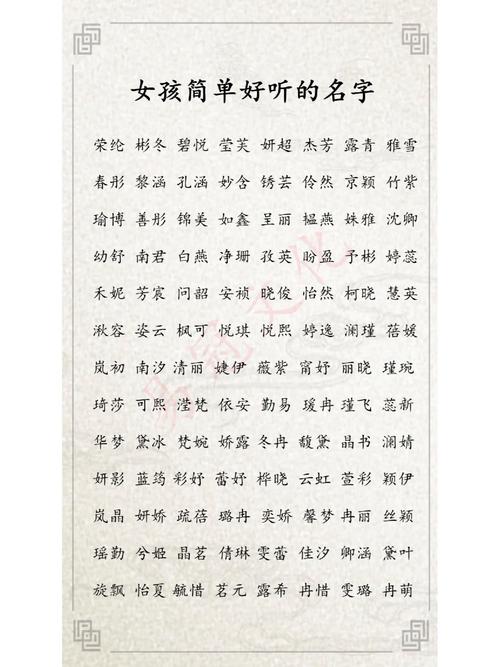 女孩简单好听的名字
荣纶 彬冬 碧悦 莹芙 妍超 杰芳 露青 雅雪
春彤 黎涵 孔涵 妙含 锈芸 伶然 京颖 竹紫
瑜博 善彤 锦美 如鑫 呈丽 韫燕 姝雅 沈卿
幼舒 南君 白燕 净珊 孜英 盼盈 予彬 婷蕊
禾妮 芳宸 问韶 安祯 晓俊 怡然 柯晓 慧英
湫容 姿云 枫可 悦琪 悦熙 婷逸 澜瑾 蓓媛
岚初 南汐 清丽 婕伊 薇紫 甯妤 丽晓 瑾琬
琦莎 可熙 滢梵 依安 勤易 瑗冉 瑾飞 蕊新
华梦 黛冰 梵婉 娇露 冬冉 馥黛 晶书 澜婧
妍影 蓝筠 彩妤 蕾妤 桦晓 云虹 萱彩 颖伊
岚晶 妍娇 疏蓓 璐冉 奕娇 馨梦 冉丽 丝颖
瑶勤 兮姬 晶茗 倩琳 雯蕾 佳汐 卿涵 黛叶
旋飘 怡夏 毓惜 茗元 露希 冉惜 雯璐 冉萌